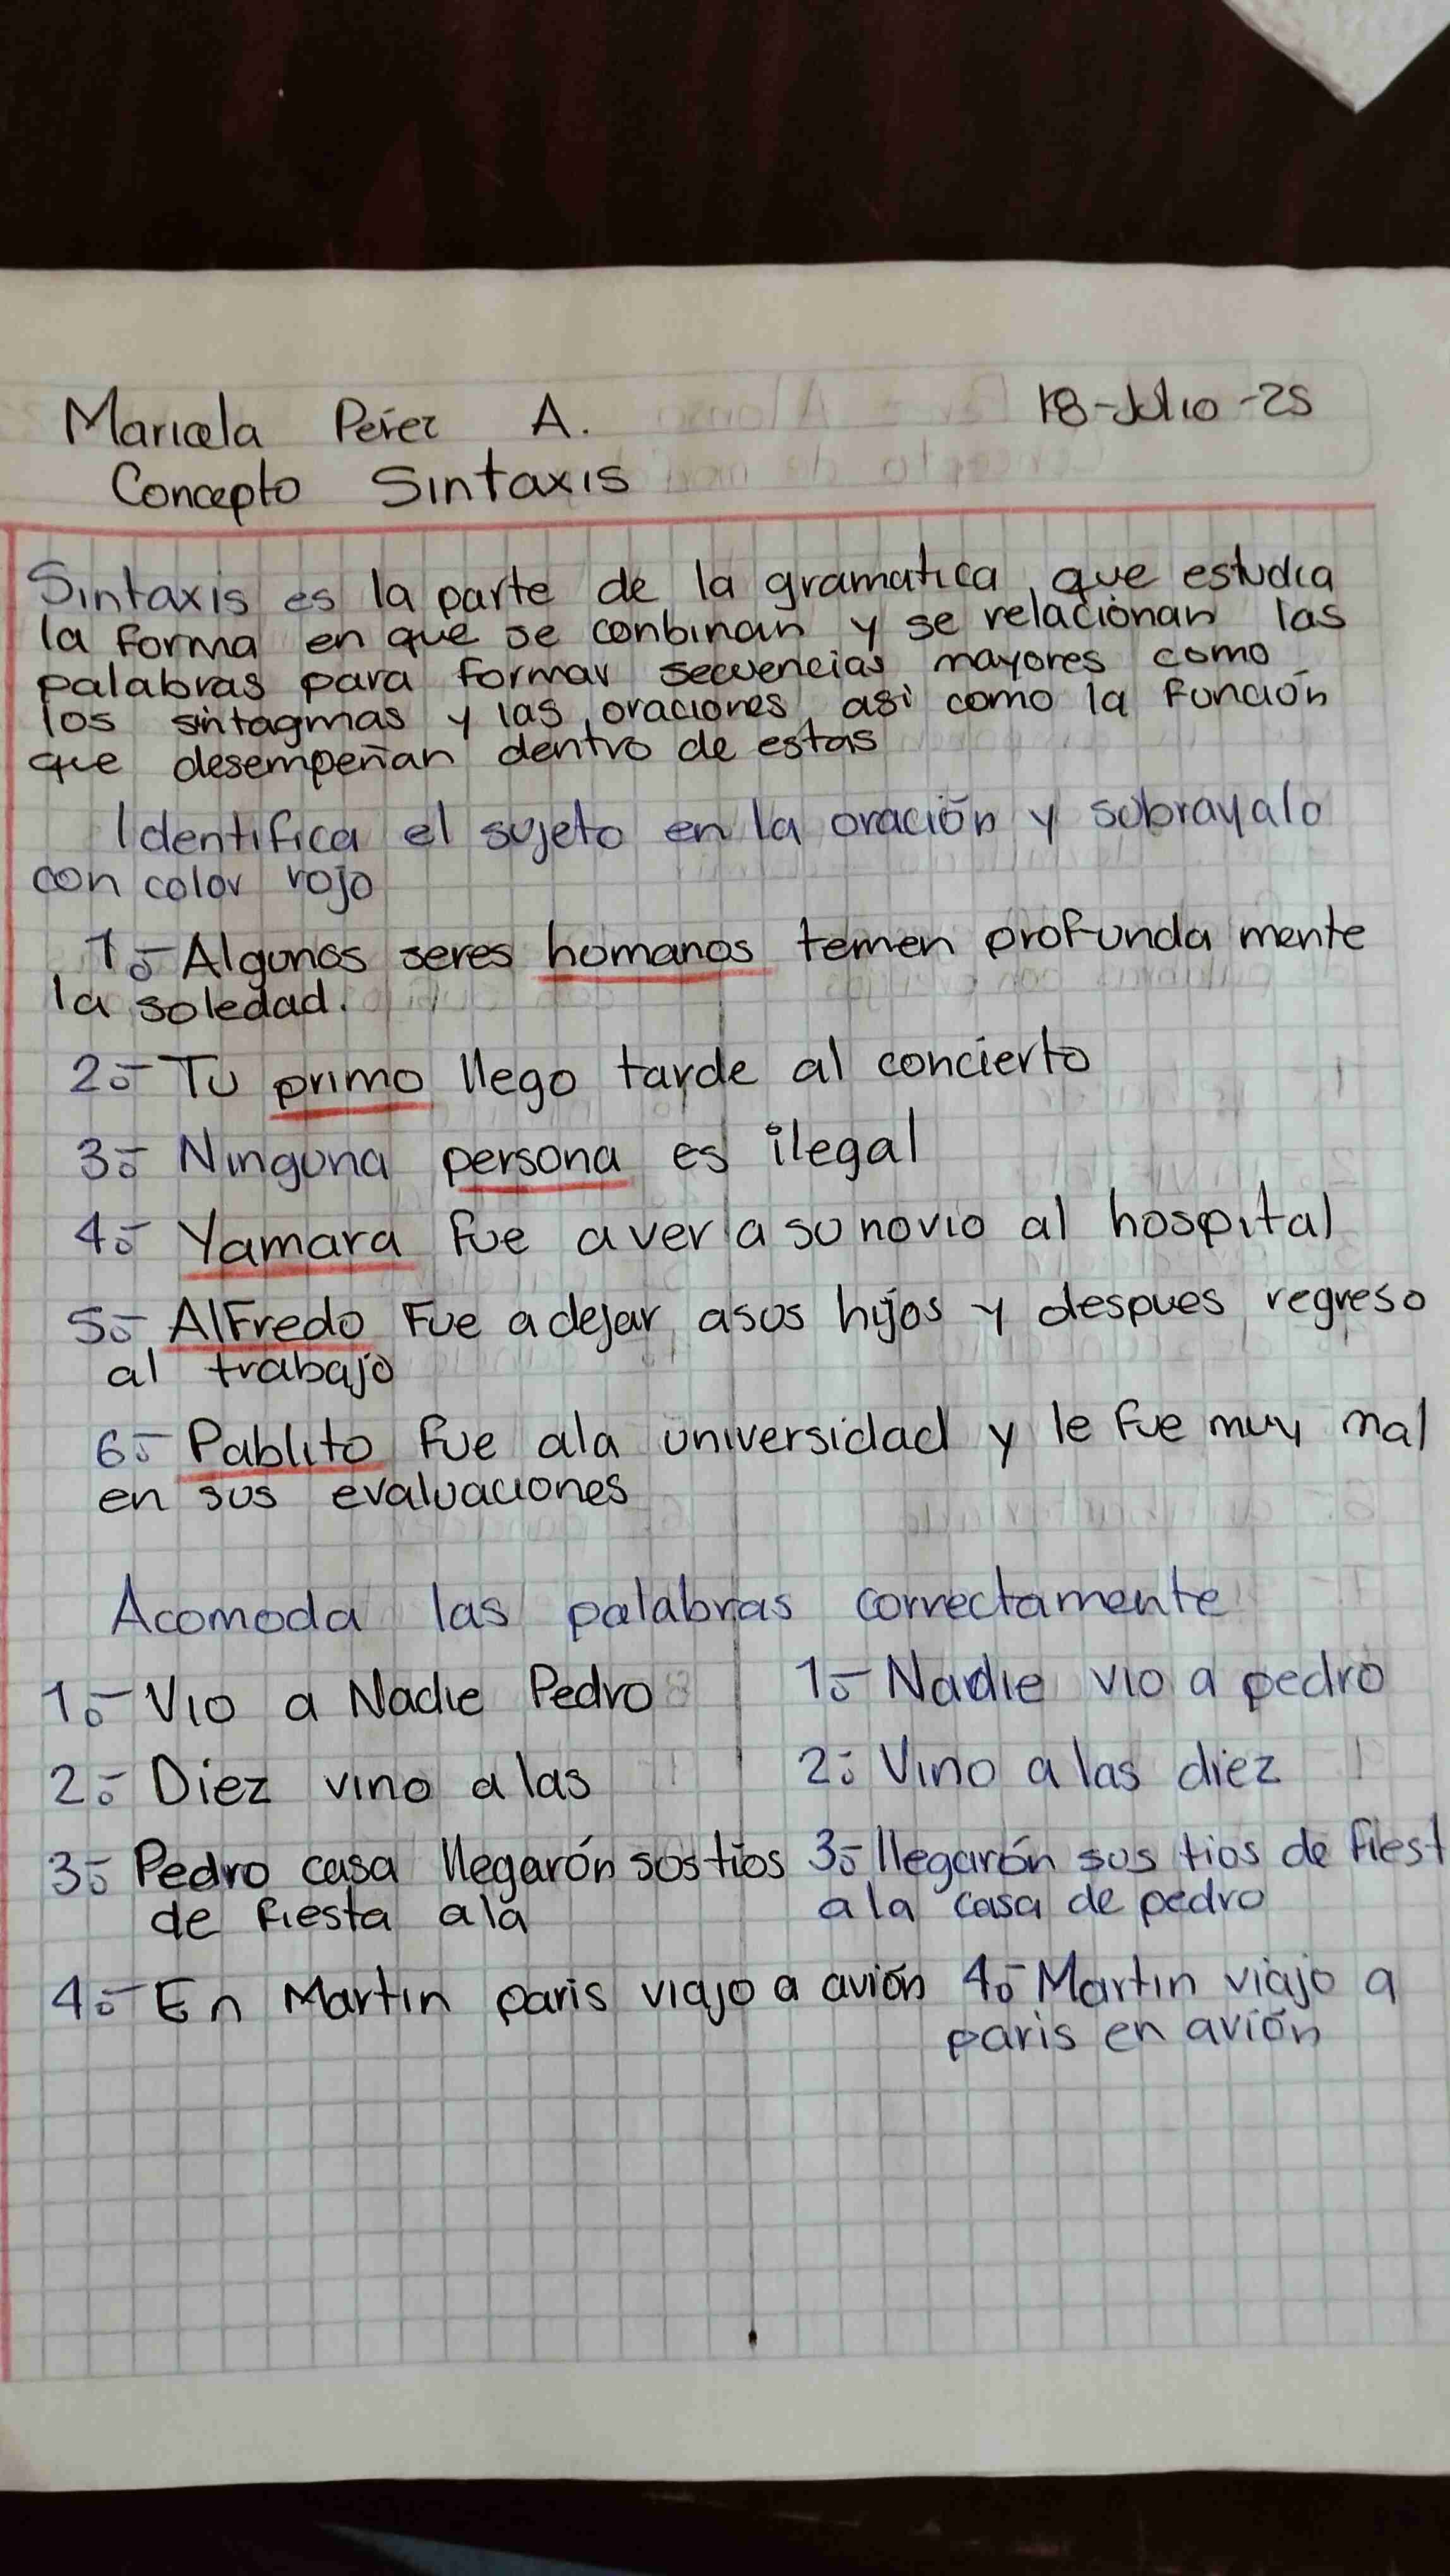 Maricela Perez A. 18-Julio-25
Concepto Sintaxis
Sintaxis es la parte de la gramatica, que estudia
la forma en que se conbinan y se relacionan las
palabras para formar secuencias mayores como
los sintagmas y las oraciones, asi como la función
que desempeñan dentro de estas
Identifica el sujeto en la oración y subrayalo
con color rojo
1.- Algunos seres humanos temen profunda mente
la soledad.
2.- Tu primo llego tarde al concierto
3.- Ninguna persona es ilegal
4.- Yamara fue a ver a su novio al hospital
5.- Alfredo fue a dejar asus hijos y despues regreso
al trabajo
6.- Pablito fue ala universidad y le fue muy mal
en sus evaluaciones
Acomoda las palabras correctamente
1.- Vio a Nadie Pedro 1.- Nadie vio a pedro
2.- Diez vino a las 2.- Vino a las diez
3.- Pedro casa llegarón sus tios 3.- llegarón sus tios de fiest
de fiesta ala ala casa de pedro
4.- En Martin paris viajo a avión 4.- Martin viajo a
paris en avión